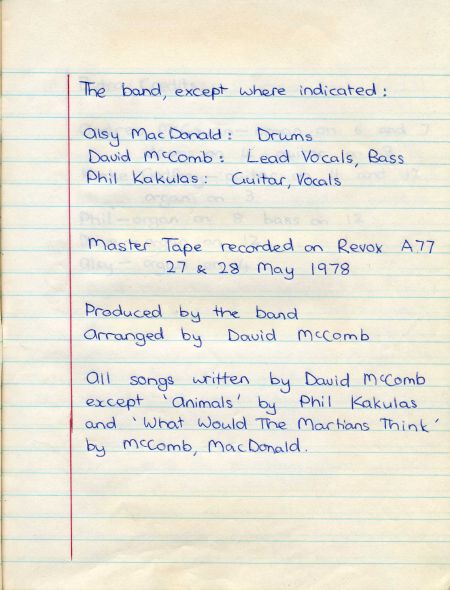 The band, except where indicated:
Alsy MacDonald: Drums
David McComb: Lead Vocals, Bass
Phil Kakulas: Guitar, Vocals
organ on 3
Phil - organ on 8 bass on 12
Master Tape recorded on Revox A77
27 & 28 May 1978
Produced by the band
Arranged by David McComb
All songs written by David McComb
except 'Animals' by Phil Kakulas
and 'What Would The Martians Think'
by McComb, MacDonald.